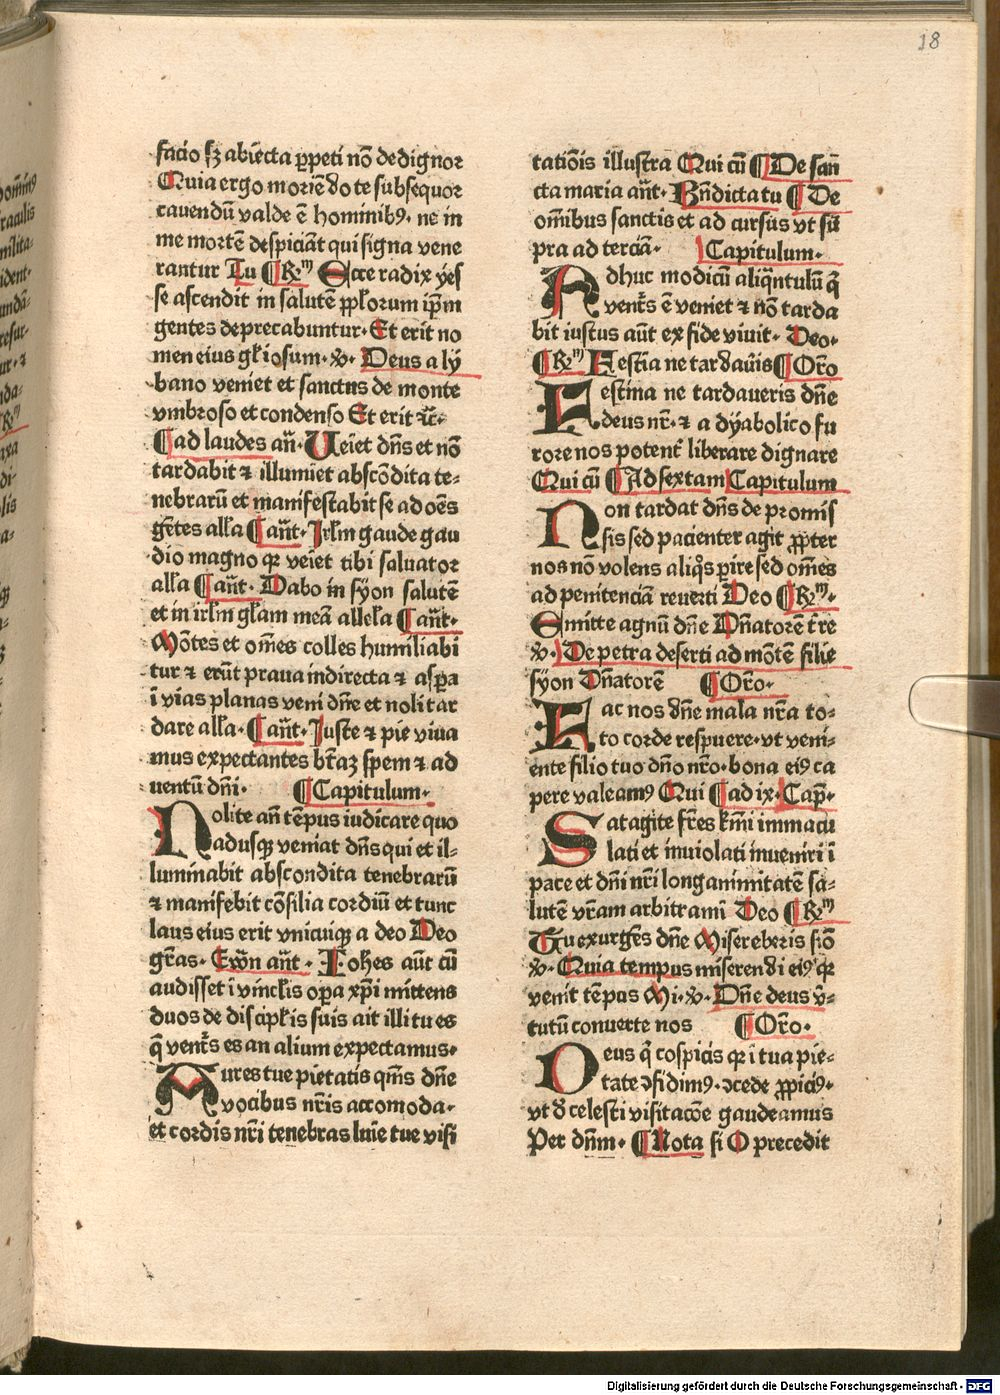 18
facio sꝫ abiecta ꝑpeti nō dedignor
Quia ergo moriēdo te subsequor
cauendū valde ē hominibꝰ. ne in
me mortē despiciāt qui signa vene
rantur Tu ¶Rm̄ Ecce radix yes
se ascendit in salutē ppl̓orum ip̄m
gentes deprecabuntur. Et erit no
men eius gl̓iosum. v̄. Deus a ly
bano veniet et sanctus de monte
vmbroso et condenso Et erit ⁊c̄.
¶ad laudes an̄. Ueiet dn̄s et nō
tardabit ⁊ illumīet abscōdita te-
nebrarū et manifestabit se ad oēs
gētes all̓a ¶an̄t. Irl̓m gaude gau
dio magno qꝛ veīet tibi saluator
all̓a ¶an̄t. Dabo in syon salutē
et in irl̓m gl̓am meā allel̓a ¶an̄t.
Mōtes et om̄es colles humiliabi
tur ⁊ erūt praua in directa ⁊ aspa
ī vias planas veni dn̄e et noli tar
dare all̓a. ¶an̄t. Juste ⁊ pie viua
mus expectantes btāꝫ spem ⁊ ad
uentū dn̄i. ¶Capitulum.
Nolite an̄ tēpus iudicare quo
adusqꝫ veniat dn̄s qui et il-
luminabit abscondita tenebrarū
⁊ manifebit cōsilia cordiū et tunc
laus eius erit vnicuiqꝫ a deo Deo
gr̄as. Ewn̄ an̄t. Ioh̄es aūt cū
audisset ī vincl̓is oꝑa xp̄i mittens
duos de discipl̓is suis ait illi tu es
q̄ vent̓s es an alium expectamus.
Aures tue pietatis qm̄s dn̄e
vocibus nr̄is accomoda.
et cordis nr̄i tenebras luīe tue visi
tatiōis illustra Qui cū ¶De san
cta maria an̄t. Bn̄dicta tu ¶De
om̄ibus sanctis et ad cursus vt sū
pra ad terciā. Capitulum.
Adhuc modicū aliqn̄tulū q̄
vent̓s ē veniet ⁊ nō tarda
bit iustus aūt ex fide viuit. Deo.
¶Rm̄ Festīa ne tardaūis ¶Or̄o
Festina ne tardaueris dn̄e
deus nr̄. ⁊ a dyabolico fu
rore nos potent̓ liberare dignare
Qui cū ¶Ad sextam Capitulum
Non tardat dn̄s de promis
sis sed pacienter agit ꝓpter
nos nō volens aliq̓s ꝑire sed om̄es
ad penitenciā reuerti Deo ¶Rm̄.
Emitte agnū dn̄e Dn̄atorē tr̄e
v̄. De petra deserti ad mōtē filie
syon Dn̄atorē ¶Or̄o.
Fac nos dn̄e mala nr̄a to-
to corde respuere. vt veni-
ente filio tuo dn̄o nr̄o. bona eiꝰ ca
pere valeamꝰ Qui ¶ad ix. Cap̄.
Satagite fr̄es km̄i immacu
lati et inuiolati inueniri ī
pace et dn̄i nr̄i longanimitatē sa-
lutē vr̄am arbitrami Deo ¶Rm̄
Tu exurgēs dn̄e Misereberis siō
v̄. Quia tempus miserendi eiꝰ qꝛ
venit tēpus Mi. v̄. Dn̄e deus v̄-
tutū conuerte nos ¶Or̄o.
Deus q̄ cōspicis qꝛ ī tua pie-
tate ↄfidimꝰ. ↄcede ꝓpiciꝰ.
vt d̄ celesti visitacōe gaudeamus
Per dn̄m. ¶Nota si O precedit
Digitalisierung gefördert durch die Deutsche Forschungsgemeinschaft - DFG